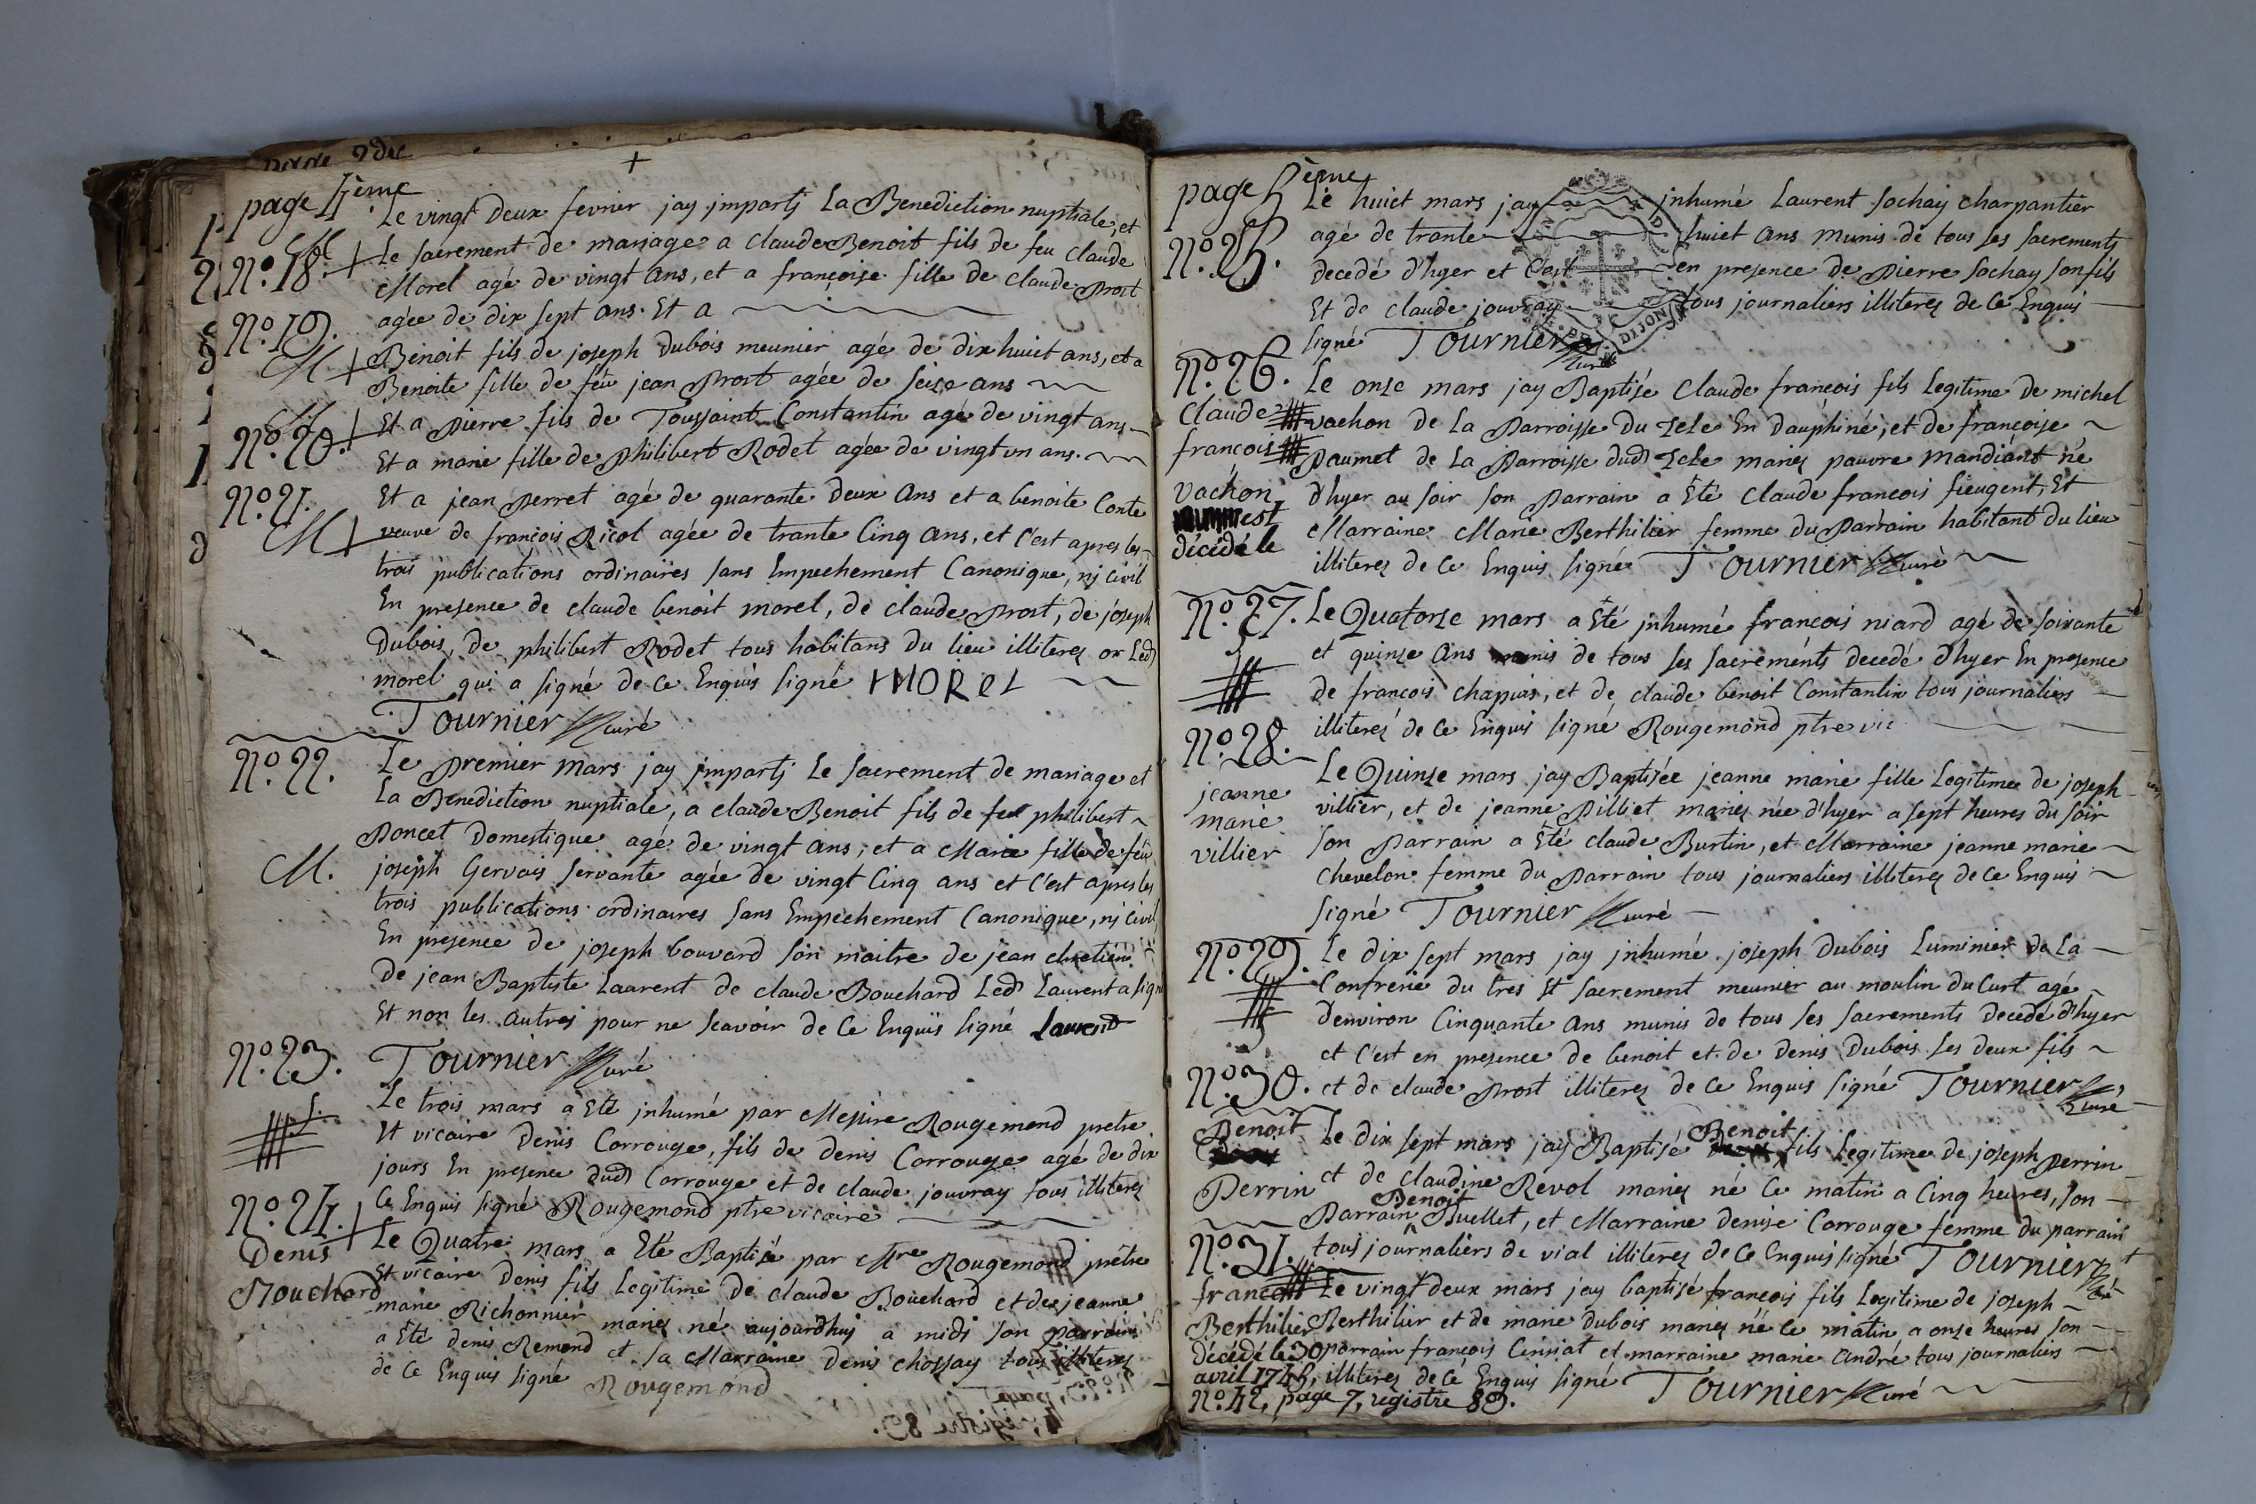 page 2de
page 4ème
Le vingt Deux fevrier jay jmpartj La Benediction nuptiale, et
N.o 18. M
Le sacrement de mariage a claude Benoit fils de feu claude
Morel agé de vingt ans, et a françoise fille de claude Prost
N.o 19.
agée de dix sept ans. Et a
M
Benoit fils de joseph Dubois meunier agé de dix huict ans, et a
Benoite fille de feu jean Prost agée de seize ans
N.o 20. M
Et a Pierre fils de Toussaint Constantin agé de vingt ans
Et a marie fille de Philibert Rodet agée de vingt vn ans.
N.o 21.
Et a jean perret agé de quarante Deux ans et a benoite Conte
M
veuve de francois Ricol agée de trante Cinq ans, et C'est apres les
trois publications ordinaires sans Empechement Canonique, nj civil
En presence de claude benoit morel, de claude Prost, de joseph
Dubois, de philibert Rodet tous habitans du lieu illiterez or Led
morel qui a signé de Ce Enquis signé MOREL
Tournier curé
N.o 22.
Le Premier mars jay jmpartj Le sacrement de mariage et
La Benediction nuptiale, a claude Benoit fils de feu philibert
Poncet Domestique agé de vingt ans, et a Marie fille de feu
M.
joseph Gervais servante agée de vingt Cinq ans et C'est apres les
trois publications ordinaires sans Empechement Canonique, nj civil
En presence de joseph bouvard son maitre de jean chretien
De jean Baptiste Laurent de claude Bouchard Led Laurent a signé
Et non les autres pour ne scavoir de Ce Enquis signé Laurent
N.o 23.
Tournier curé
Le trois mars a Eté jnhumé par Messire Rougemond pretre
Et vicaire Denis Corrouge, fils de Denis Corrouge agé de dix
jours En presence dud Corrouge et de claude jouvray tous illiterez
Ce Enquis signé Rougemond ptre vicaire
N.o 24.
Denis
Bouchard
Le Quatre mars a Eté Baptisé par Mre Rougemond prêtre
Et vicaire Denis fils Legitime de claude Bouchard et de jeanne
marie Richonnier mariez né aujourdhuj a midj son parrain
a Eté denis Remond et sa Marraine Denis chossay tous illiterez
de Ce Enquis signé Rougemond
page 5ème
N.o 25.
Le huict mars jay jnhumé Laurent sochay charpantier
agé de trante huict ans munis de tous ses sacrements
decedé d'hyer et C'est en presence de Pierre sochay son fils
Et de claude jouvray tous journaliers illiterez de Ce Enquis
signé Tournier curé
DIJON
N.o 26.
Claude
francois
vachon
est
décédé le
Le onze mars jay Baptisé claude françois fils Legitime de michel
vachon de La Parroisse du Zele En Dauphiné, et de françoise
Paumet de La Parroisse dud Zele mariez pauvre mandiant né
d'hyer au soir son Parrain a Eté claude francois fieugent, Et
Marraine Marie Berthilier femme du Parrain habitant du lieu
illiterez de Ce Enquis signé Tournier curé
N.o 27.
Le Quatorze mars a Eté jnhumé françois niard agé de soixante
et quinze ans munis de tous ses sacrements decedé d'hyer En presence
de francois chapuis, et de claude benoit Constantin tous journaliers
illiterez de Ce Enquis signé Rougemond ptre vic
N.o 28.
jeanne
marie
villier
Le Quinze mars jay Baptisée jeanne marie fille Legitime de joseph
villier, et de jeanne Pilliet mariez née d'hyer a sept heures du soir
son Parrain a Eté claude Burtin, et Marraine jeanne marie
chevelon femme du Parrain tous journaliers illiterez de Ce Enquis
signé Tournier curé
N.o 29.
Le dix sept mars jay jnhumé joseph Dubois Luminier de La
Confrerie du tres St sacrement meunier au moulin du Curt agé
denviron Cinquante ans munis de tous ses sacrements decedé d'hyer
et C'est en presence de benoit et de Denis Dubois ses deux fils
et de claude Prost illiterez de Ce Enquis signé Tournier curé
N.o 30.
Benoit
Perrin
Le dix sept mars jay Baptisé Benoit fils Legitime de joseph Perrin
et de claudine Revol mariez né Ce matin a Cinq heures, son
Parrain Benoit Puellet, et Marraine denise Corrouge femme du parrain
tous journaliers de vial illiterez de Ce Enquis signé Tournier curé
N.o 31.
francois
Berthilier
décédé le 30
avril 1745,
N.o 42, page 7, registre 89.
Le vingt deux mars jay baptisé françois fils Legitime de joseph
Berthilier et de marie dubois mariez né Ce matin a onze heures son
parrain françois Ciniat et marraine marie andré tous journaliers
illiterez de Cé Enquis signé Tournier curé